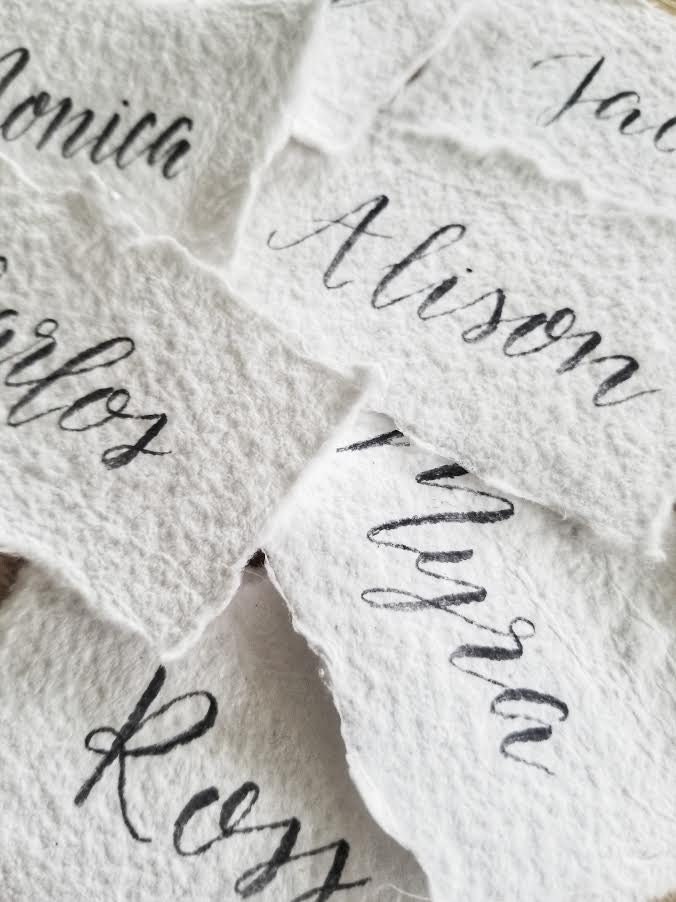 onica
Jac
Alison
arlos
Myra
Ross